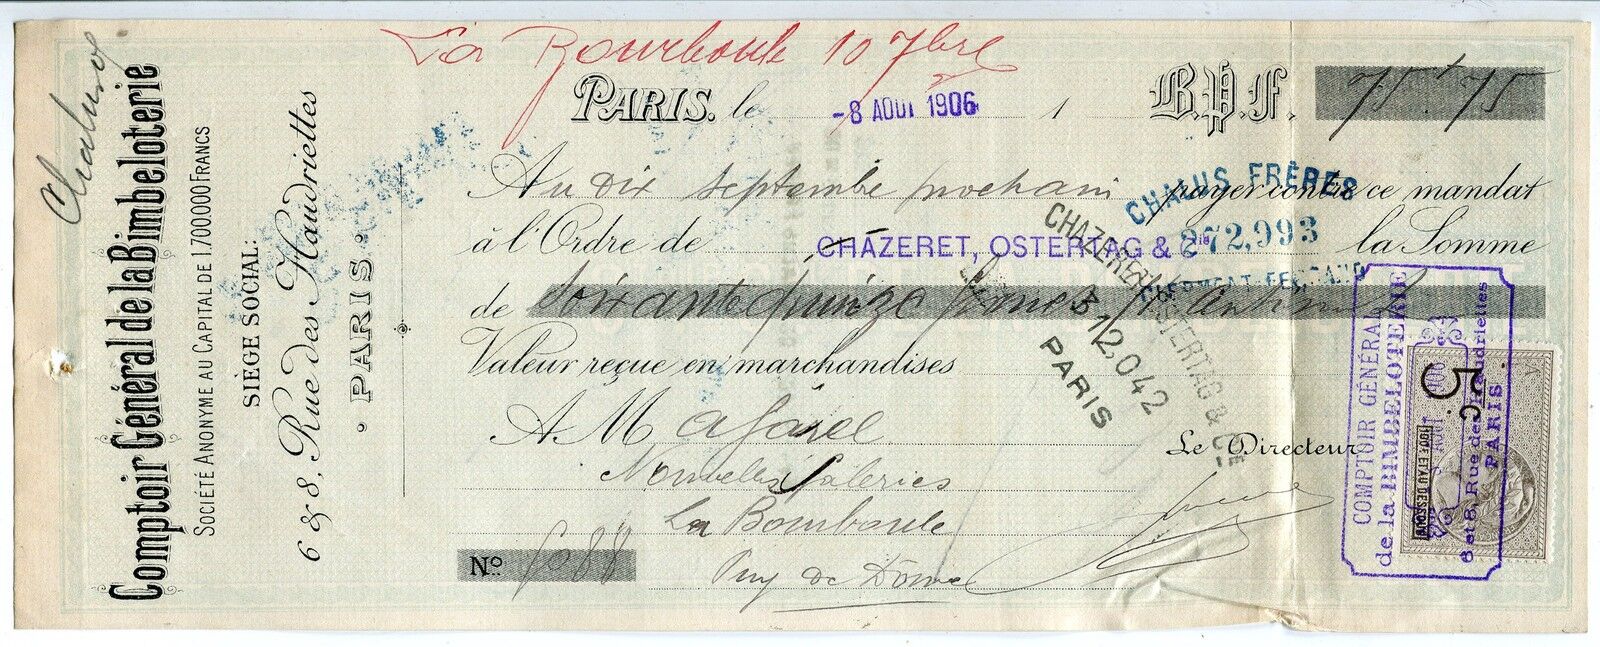 Chalus
Comptoir Général de la Bimbeloterie
SOCIÉTÉ ANONYME AU CAPITAL DE 1.700.000 FRANCS
SIÈGE SOCIAL:
6 & 8, Rue des Haudriettes
· PARIS ·
La Bourboule 10 7bre
PARIS. le -8 AOUT 1906 1 B.P.F. 75 + 75
Au dix septembre prochain payer contre ce mandat
à l'Ordre de CHAZERET, OSTERTAG & Cie la Somme
de Soixante quinze francs
Valeur reçue en marchandises
A M
Nouvelles Galeries
La Bourboule
Puy de Dôme
No 8088
Le Directeur
CHALUS FRÈRES
272,993
CLERMONT-FERRAND
CHAZERET, OSTERTAG & CIE
312,042
PARIS
COMPTOIR GÉNÉRAL
de la BIMBELOTERIE
6 et 8, Rue des Haudriettes
PARIS
5 c